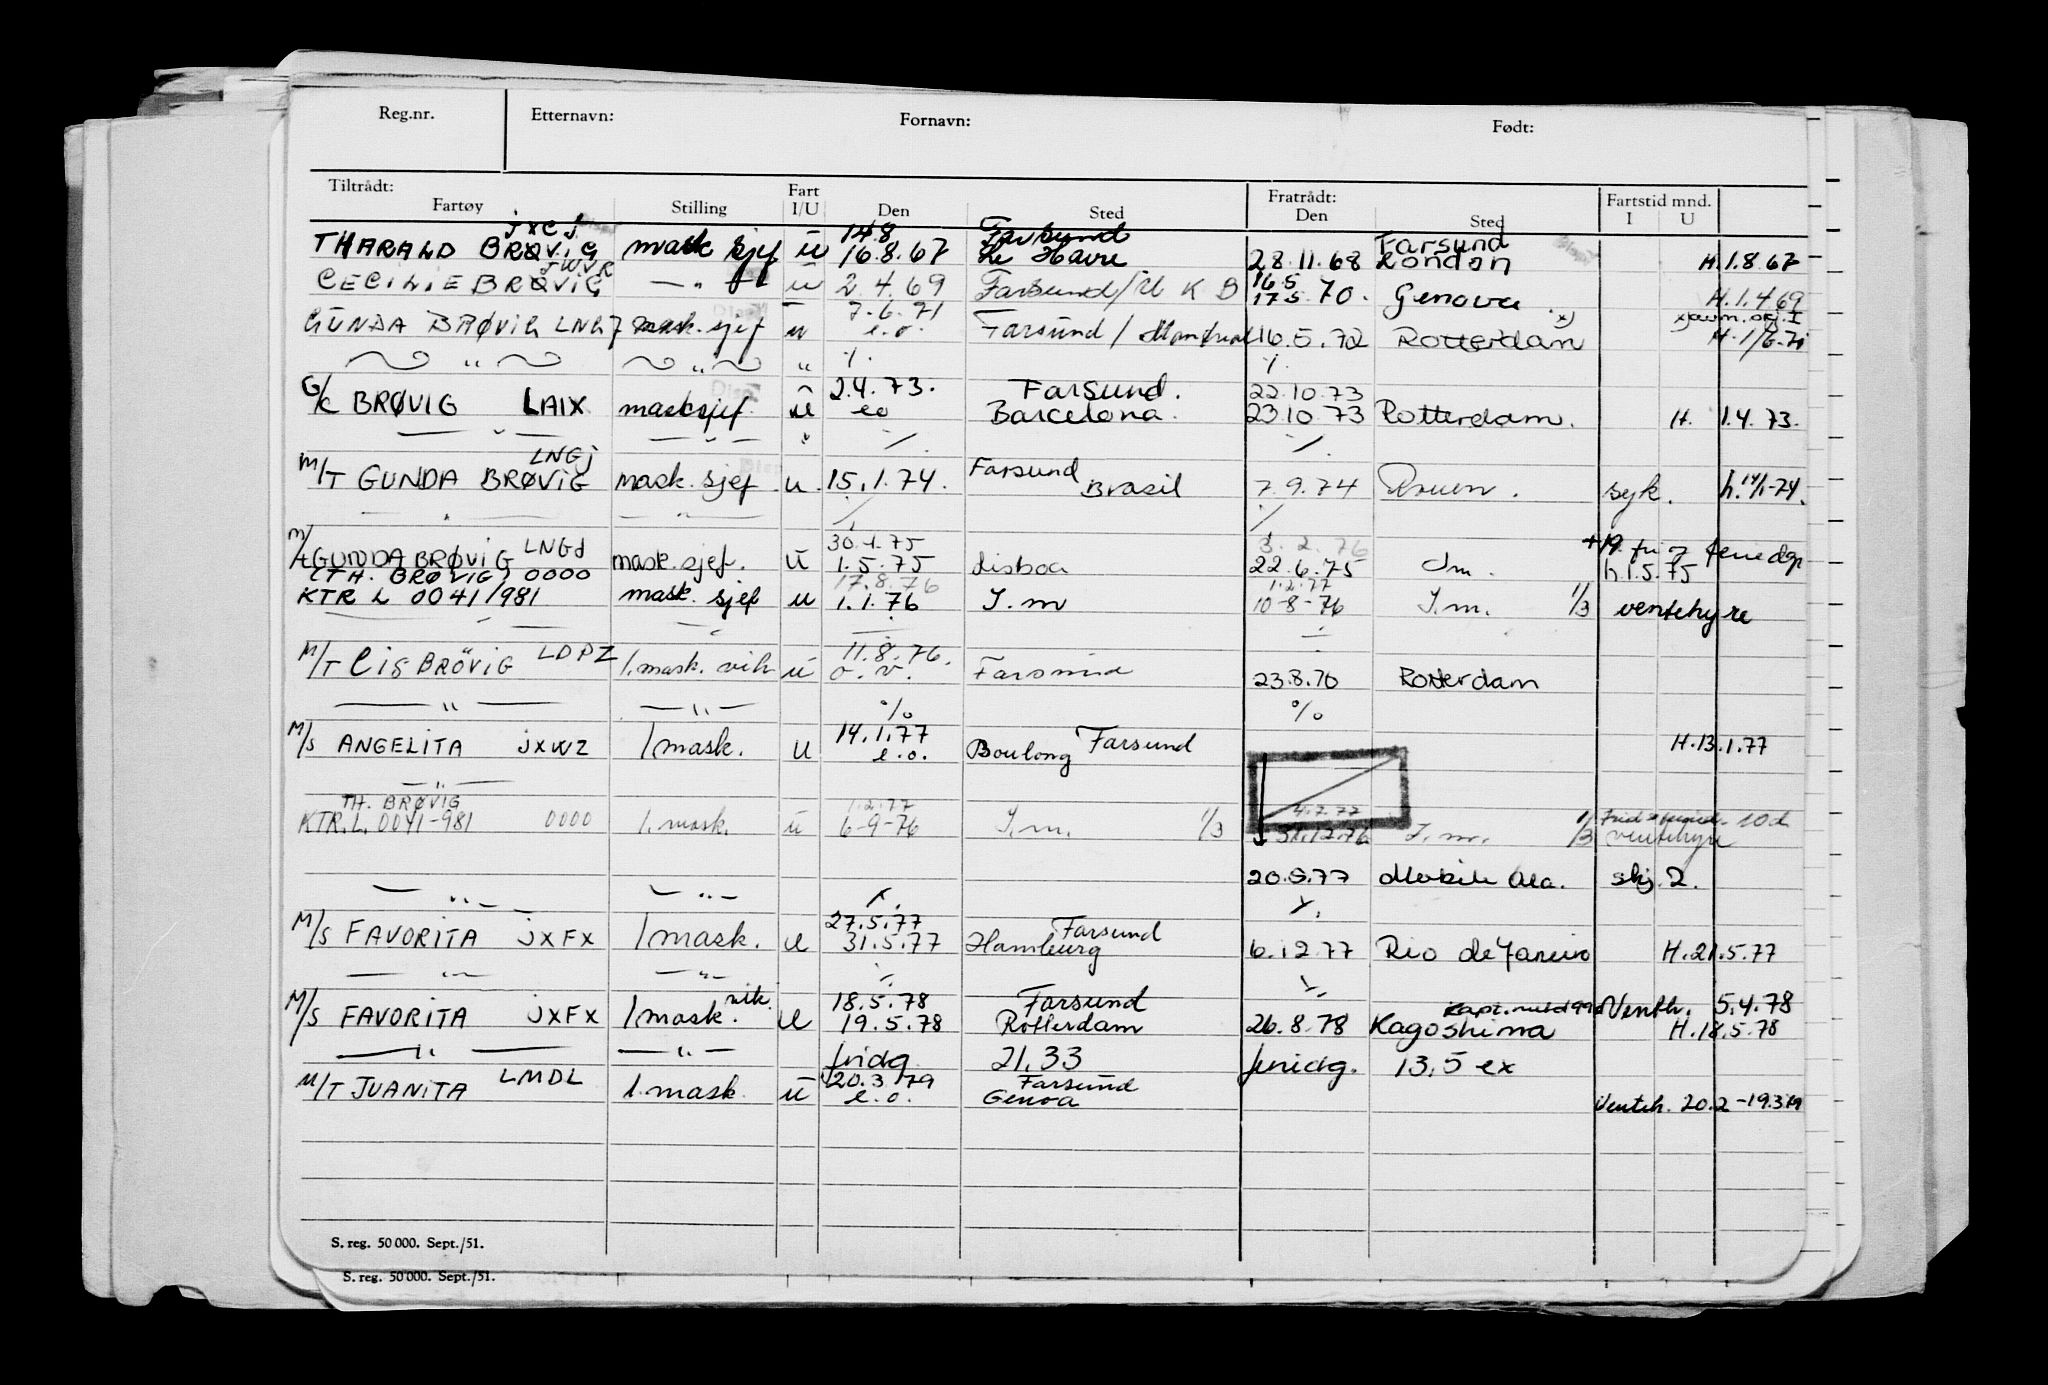 Reg.nr. Etternavn: Fornavn: Født:
Tiltrådt: Fart Fratrådt: Fartstid mnd.
Fartøy Stilling I/U Den Sted Den Sted I U
JXCJ 148 Farsund Farsund
THARALD BRØVIG mask sjef u 16.8.67 Le Havre 28.11.68 London H.1.8.67
JWVR 16.5
CECILIE BRØVIG — " — u 2.4.69 Farsund / 17.5.70. Genova H.1.4.69
7.6.71 x)
GUNDA BRØVIG LNGJ mask. sjef u e.o. Farsund / Montreal 16.5.72 Rotterdam H.1/6.71
" " " ·/. ·/.
2.4.73. Farsund. 22.10.73
G/c BRØVIG LAIX masksjef u eo Barcelona. 23.10.73 Rotterdam. H. 1.4.73.
— " — — " — " ·/. ·/.
LNGJ Farsund
M/T GUNDA BRØVIG mask. sjef u 15.1.74. Brasil 7.9.74 Rouen. syk. h.14/1-74.
— " — — " — ·/. ·/.
LNGJ 30.1.75 3.2.76
M/T GUNDA BRØVIG mask. sjef. u 1.5.75 Lisboa 22.6.75 Im. h.1.5.75
(TH. BRØVIG) 0000 17.8.76 1.2.77
KTR L 0041/981 mask. sjef u 1.1.76 I.m 10-8-76 I.m. 1/3 ventehyre
— " — — " —
LDPZ 11.8.76.
M/T CIS BRØVIG 1. mask. vik u o.v. Farsund 23.8.70 Rotterdam
— " — — " — ·/. ·/.
14.1.77 Farsund
M/S ANGELITA JXWZ 1 mask. u e.o. Boulong H.13.1.77
— " —
TH. BRØVIG 1.2.77 4.2.77 10d
KTR. L. 0041-981 0000 1. mask. u 6-9-76 I.m. 1/3 31.12.76 I.m. 1/3 ventehyre
20.5.77 Mobile Ala. skj. 2.
— " — — " — ·/. ·/.
27.5.77 Farsund
M/S FAVORITA JXFX 1 mask. u 31.5.77 Hamburg 6.12.77 Rio de Janeiro H.21.5.77
— " — — " — ·/. ·/.
vik. 18.5.78 Farsund Venth. 5.4.78
M/S FAVORITA JXFX 1 mask. u 19.5.78 Rotterdam 26.8.78 Kagoshima H.18.5.78
— " — — " — fridg 21,33 feriedg. 13,5 ex
LMDL 20.3.79 Farsund
M/T JUANITA 1. mask. u e.o. Genoa Venteh. 20.2-19.3.79
S. reg. 50 000. Sept./51.
S. reg. 50 000. Sept./51.